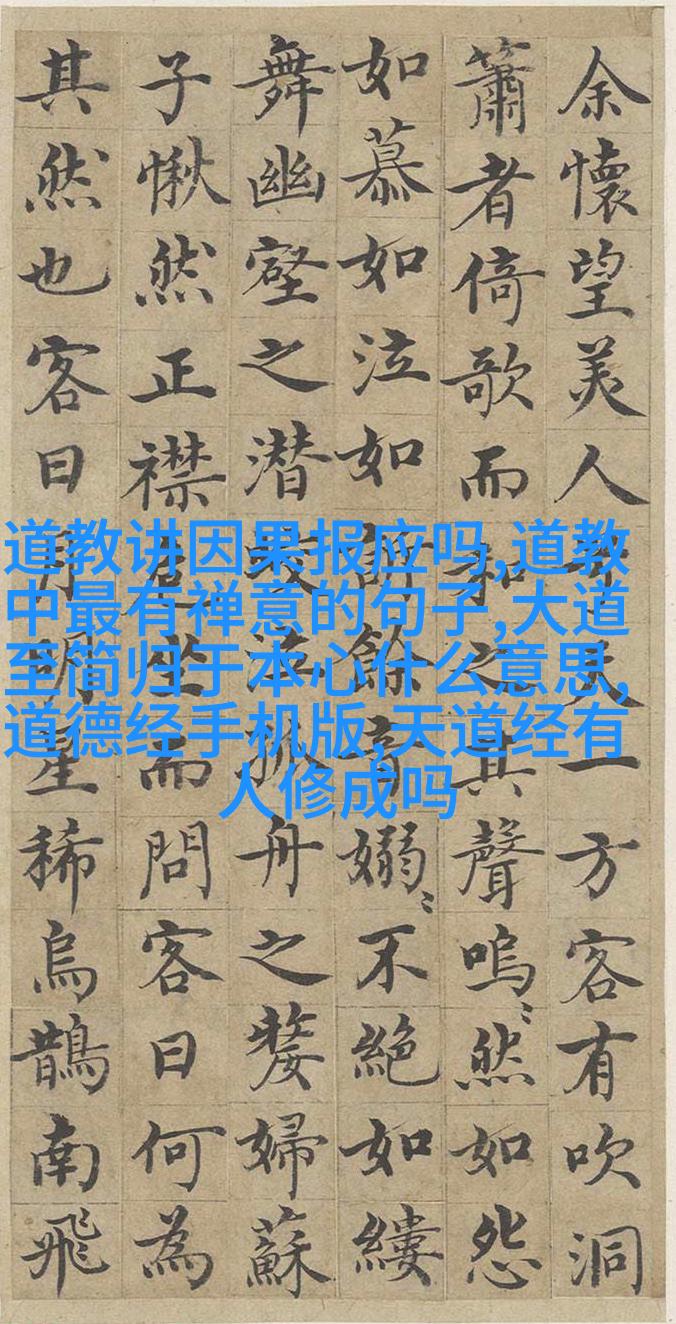 余懷望美人兮天一方客有吹洞
簫者倚歌而和之其聲嗚〻然如怨
如慕如泣如訴餘音嫋〻不絕如縷
舞幽壑之潛蛟泣孤舟之嫠婦蘇
子愀然正襟危坐而問客曰何為
其然也客曰月明星稀烏鵲南飛
道教讲因果报应吗,道教
中最有禅意的句子,大道
至简归于本心什么意思,
道德经手机版,天道经有
人修成吗